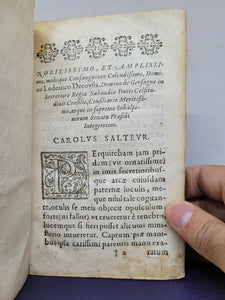 NOBILISSIMO, ET AMPLISSI-
mo, mihique Consanguineo Colendissimo, Domi-
no Ludouico Decovsta, Domino de Gerfagne in
Secretiore Regiæ Sabaudiæ Ducis Celsitu-
dinis Consilio, Consiliario Meritissi-
mo, atque in supremo Subalpi-
norum Senatu Præsidi
Integerrimo.
CAROLVS SALTEVR.
PErquirebam iam pri-
dem (vt ornatissime)
in imis secretioribus-
que arcæ cuiusdam
paternæ loculis, me-
que nihil magis cogitan-
te, oculis se meis obiecit eximium opus
forte (ni fallor) vt reueretur è tenebris,
lucemque si fieri posset aliculus mini-
sterio intueretur. Captum præ ma-
nibus ipsa carissimi parentis manu exa-
† 2 ratum